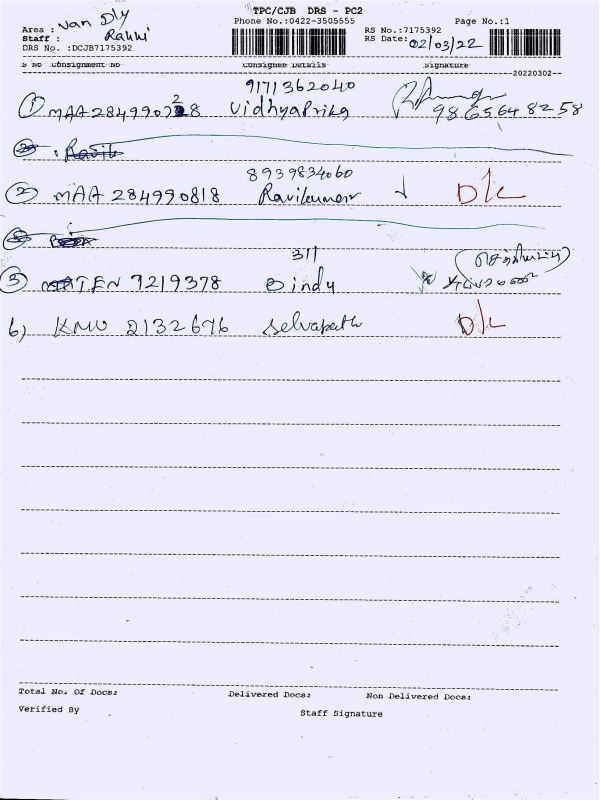 TPC/CJB DRS - PC2
Phone No.:0422-3505555 Page No.:1
Area : Van Dly
Staff :
DRS No. :DCJB7175392
RS No.:7175392
RS Date: 02/03/22
S No Consignment No Consignee Details Signature
--20220302--
9171362040
① MAA 284990728 Vidhyapriya 9865648258
8939834060
② MAA 284990818 Ravikumar D/L
311
TEN 7219378 Bindu
6) KMU 2132676 Selvapathi D/L
Total No. Of Docs: Delivered Docs: Non Delivered Docs:
Verified By Staff Signature